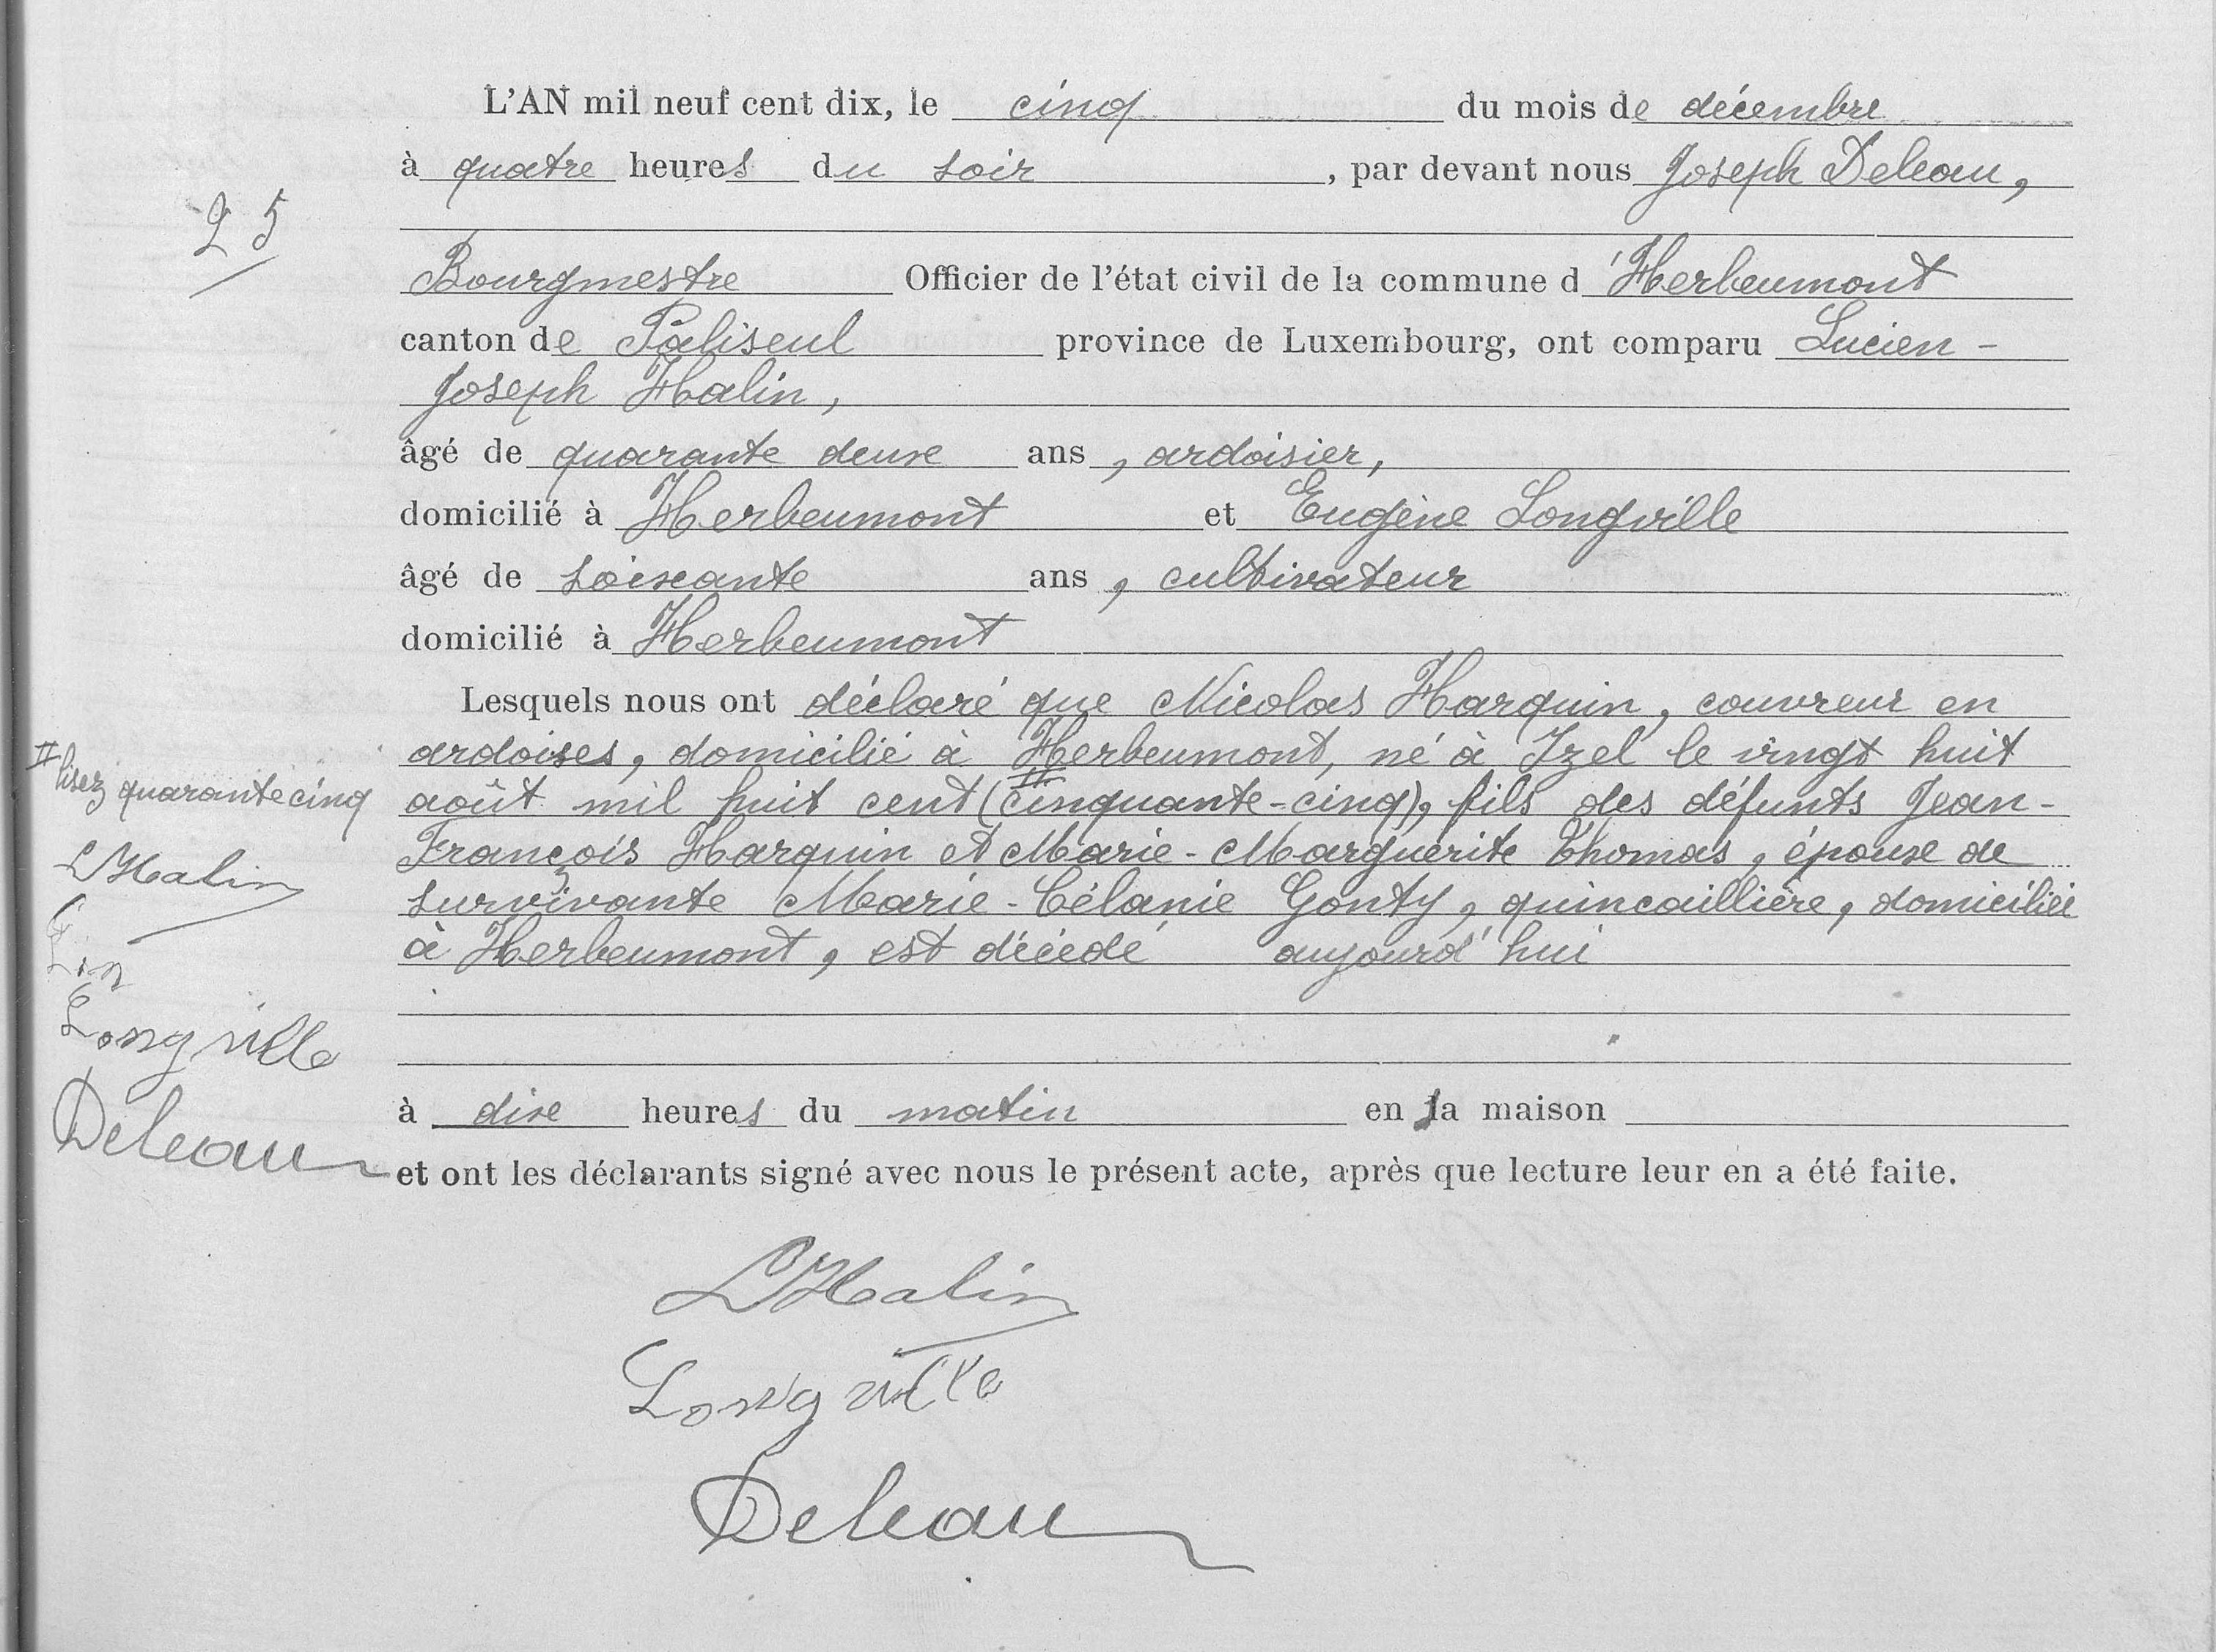 L'AN mil neuf cent dix, le cinq du mois de décembre
à quatre heures du soir, par devant nous Joseph Deleau,
25
Bourgmestre Officier de l'état civil de la commune d'Herbeumont
canton de Paliseul province de Luxembourg, ont comparu Lucien-
Joseph Halin,
âgé de quarante deux ans, ardoisier,
domicilié à Herbeumont et Eugène Longville
âgé de soixante ans, cultivateur
domicilié à Herbeumont
Lesquels nous ont déclaré que Nicolas Harquin, couvreur en
ardoises, domicilié à Herbeumont, né à Izel le vingt huit
août mil huit cent (II cinquante-cinq), fils des défunts Jean-
François Harquin et Marie-Marguerite Thomas, épouse de
survivante Marie-Célanie Gonty, quincaillière, domiciliée
à Herbeumont, est décédé aujourd'hui
II lisez quarante cinq
L Halin
Longville
Deleau
à dix heures du matin en sa maison
et ont les déclarants signé avec nous le présent acte, après que lecture leur en a été faite.
L Halin
Longville
Deleau